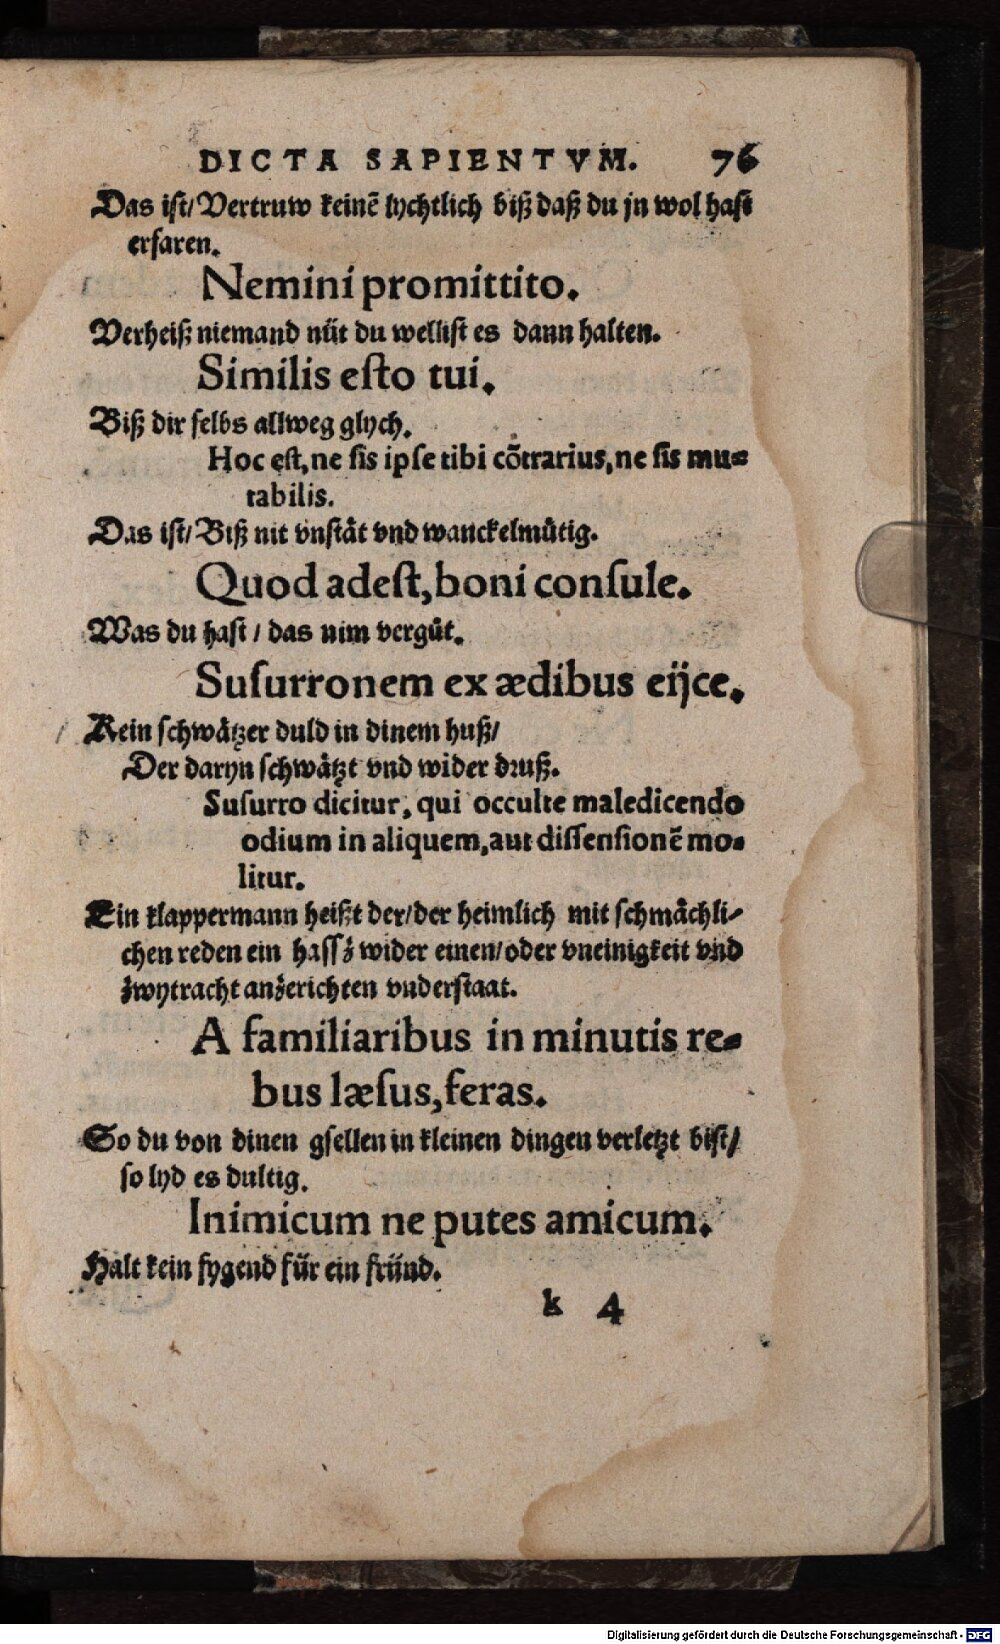 DICTA SAPIENTVM. 76
Das ist/ Vertruw keinē lychtlich biß daß du jn wol hast
erfaren.
Nemini promittito.
Verheiß niemand nüt du wellist es dann halten.
Similis esto tui.
Biß dir selbs allweg glych.
Hoc est, ne sis ipse tibi cōtrarius, ne sis mu⸗
tabilis.
Das ist/ Biß nit vnståt vnd wanckelmůtig.
Quod adest, boni consule.
Was du hast / das nim vergůt.
Susurronem ex ædibus eijce.
Kein schwåtzer duld in dinem huß/
Der daryn schwåtzt vnd wider druß.
Susurro dicitur, qui occulte maledicendo
odium in aliquem, aut dissensionē mo⸗
litur.
Ein klappermann heißt der/ der heimlich mit schmåchli⸗
chen reden ein hassz wider einen/ oder vneinigkeit vnd
zwytracht anzerichten vnderstaat.
A familiaribus in minutis re⸗
bus læsus, feras.
So du von dinen gsellen in kleinen dingen verletzt bist/
so lyd es dultig.
Inimicum ne putes amicum.
Halt kein fygend für ein fründ.
k 4
Digitalisierung gefördert durch die Deutsche Forschungsgemeinschaft - DFG